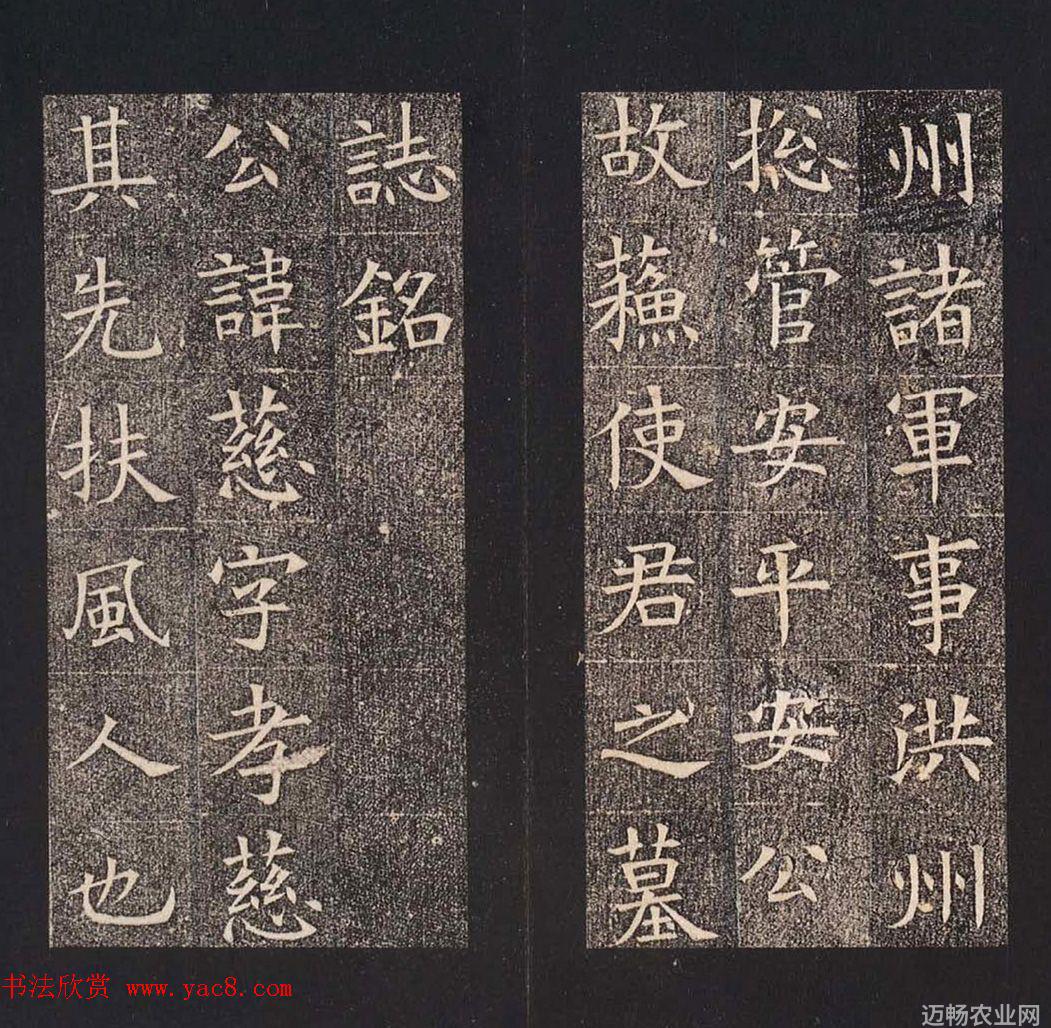 州諸軍事洪州
捴管安平安公
故蘓使君之墓
誌銘
公諱慈字孝慈
其先扶風人也
书法欣赏 www.yac8.com
迈畅农业网